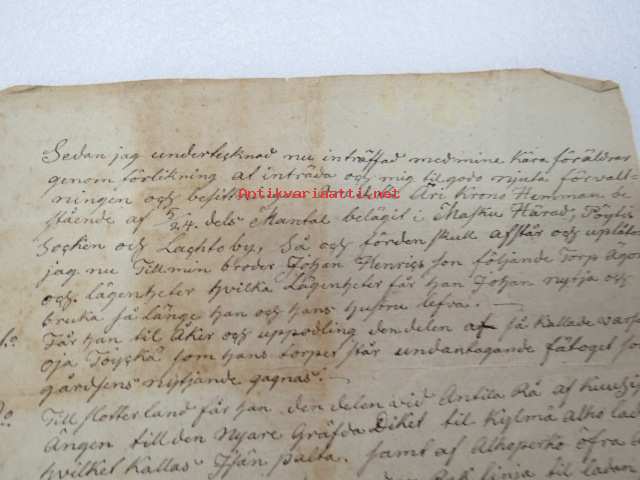 Sedan jag undertecknad nu inträffad med mine Kära föräldrar
genom förlikning at inträda och mig til godo niuta förvalt-
ningen och besittningen Äri Krono Hemman be
Antikvariaatti.net
stående af 5/24 dels Mantal belägit i Masku Härad,
Sochen och Lachto by, Så och förden skull afstår och uplåter
jag nu Till min broder Johan Henrics son följande Torp Ägor
och lägenheter hvilka Lägenheter får han Johan nyttja och
bruka så länge han och hans hustru lefva.
1:o Får han til Åker och uppodling den delen af så kallade
oja som hans torper står undantagande fätoget
gårdsens nyttjande gagnas.
2:o Till slotterland får han den delen vid Antila Rå af
Ängen till den Nyare Gräfda Diket til Kylmä Alho
hvilket kallas Isän palta. samt af Alhoperko öfra
Rak linia til ladan